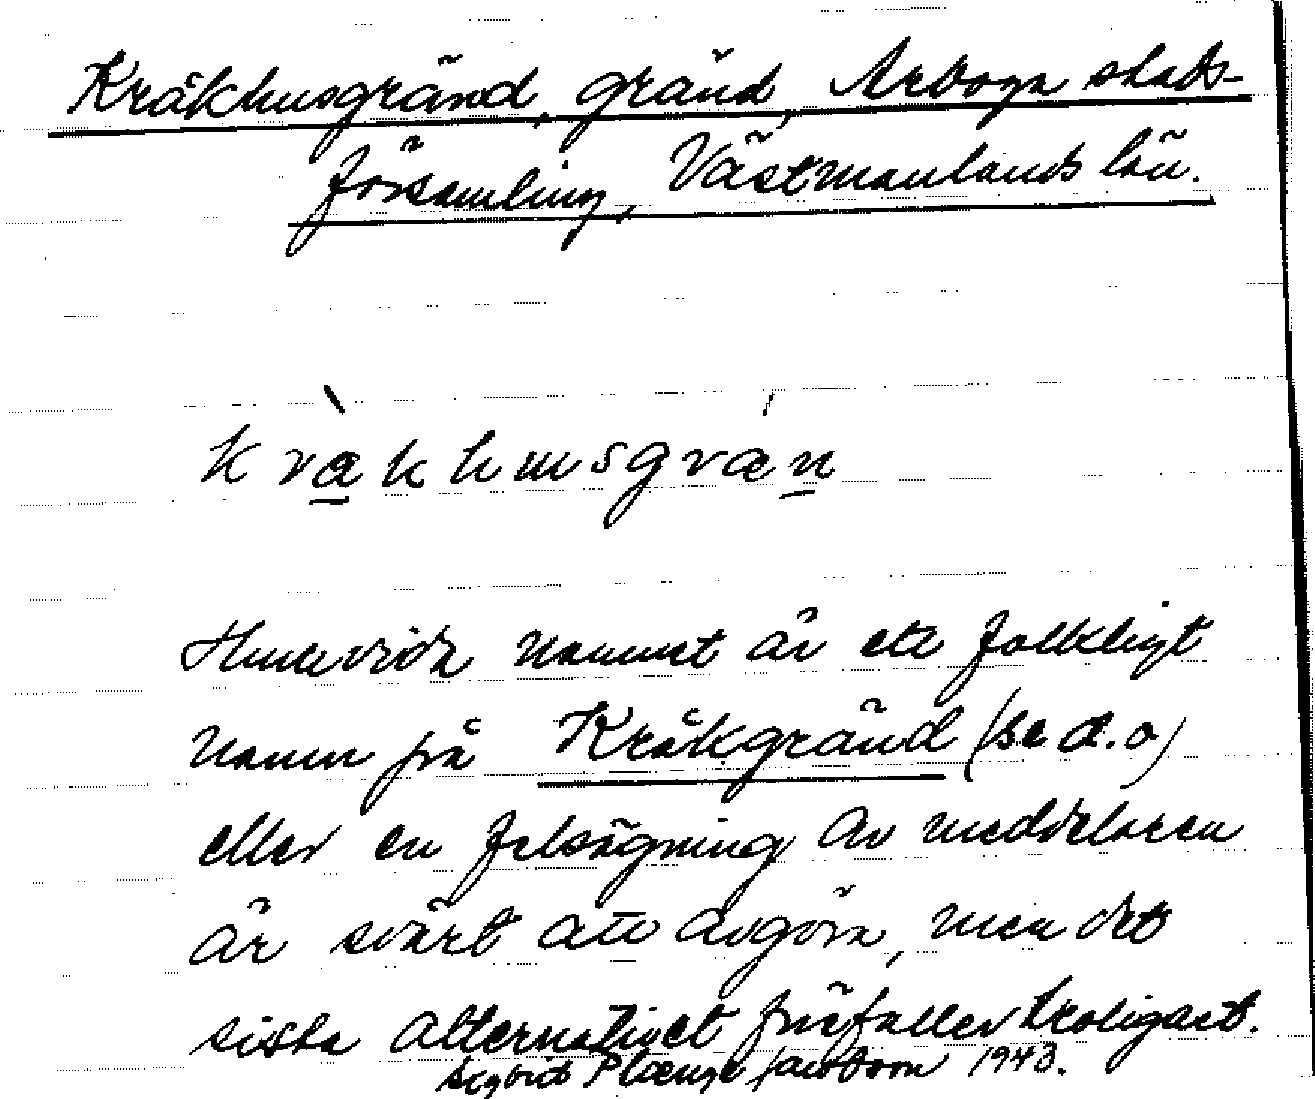 Kråkhusgränd, gränd, Arboga stads-
församling, Västmanlands län.
kråkhusgræn
Huruvida namnet är ett folkligt
namn på Kråkgränd (se d.o)
eller en felsägning av meddelaren
är svårt att avgöra, men det
sista alternativet förefaller troligast.
Sigbrit Plænge Jacobson 1943.